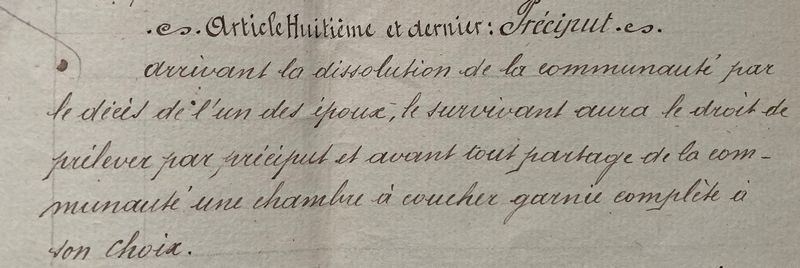 .es. Article Huitième et dernier : Préciput .es.
arrivant la dissolution de la communauté par
le décès de l'un des époux, le survivant aura le droit de
prélever par préciput et avant tout partage de la com-
munauté une chambre à coucher garnie complète à
son choix.